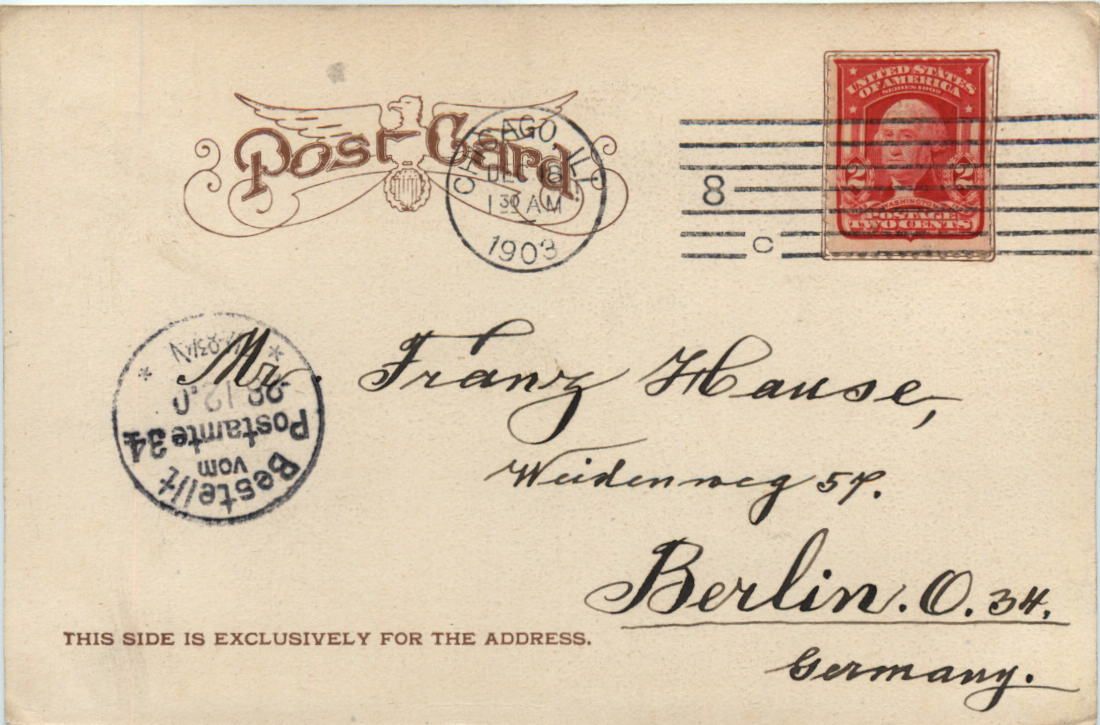 Post Card
CHICAGO, ILL.
DEC 18
1 30 AM
1903
8
C
UNITED STATES
OF AMERICA
SERIES 1902
2 2
WASHINGTON
POSTAGE
TWO CENTS
Bestellt
vom
Postamte 34
28.12.0
Mr. Franz Hause,
Weidenweg 57.
Berlin. O. 34.
Germany.
THIS SIDE IS EXCLUSIVELY FOR THE ADDRESS.